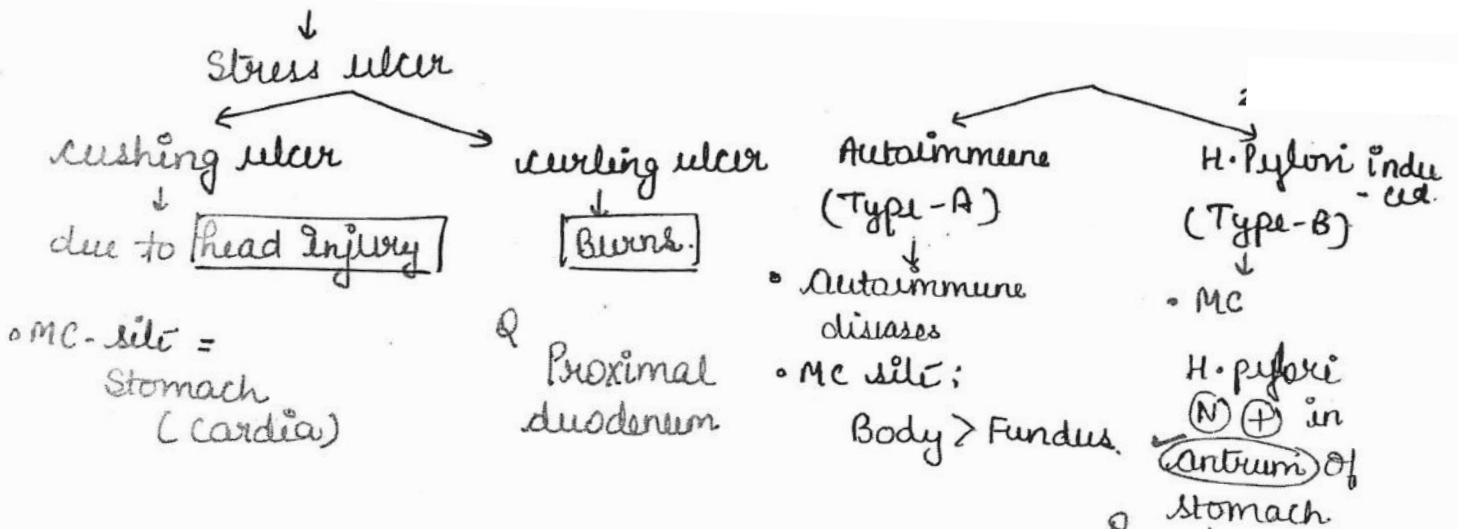 ↓
Stress ulcer
cushing ulcer
↓
due to head Injury
• MC - site =
Stomach
(cardia)
curling ulcer
↓
Burns.
Q
Proximal
duodenum
Autoimmune
(Type-A)
↓
• Autoimmune
diseases
• MC site:
Body > Fundus.
H. Pylori indu
- ced.
(Type-B)
↓
• MC
H. pylori
N + in
antrum of
stomach.